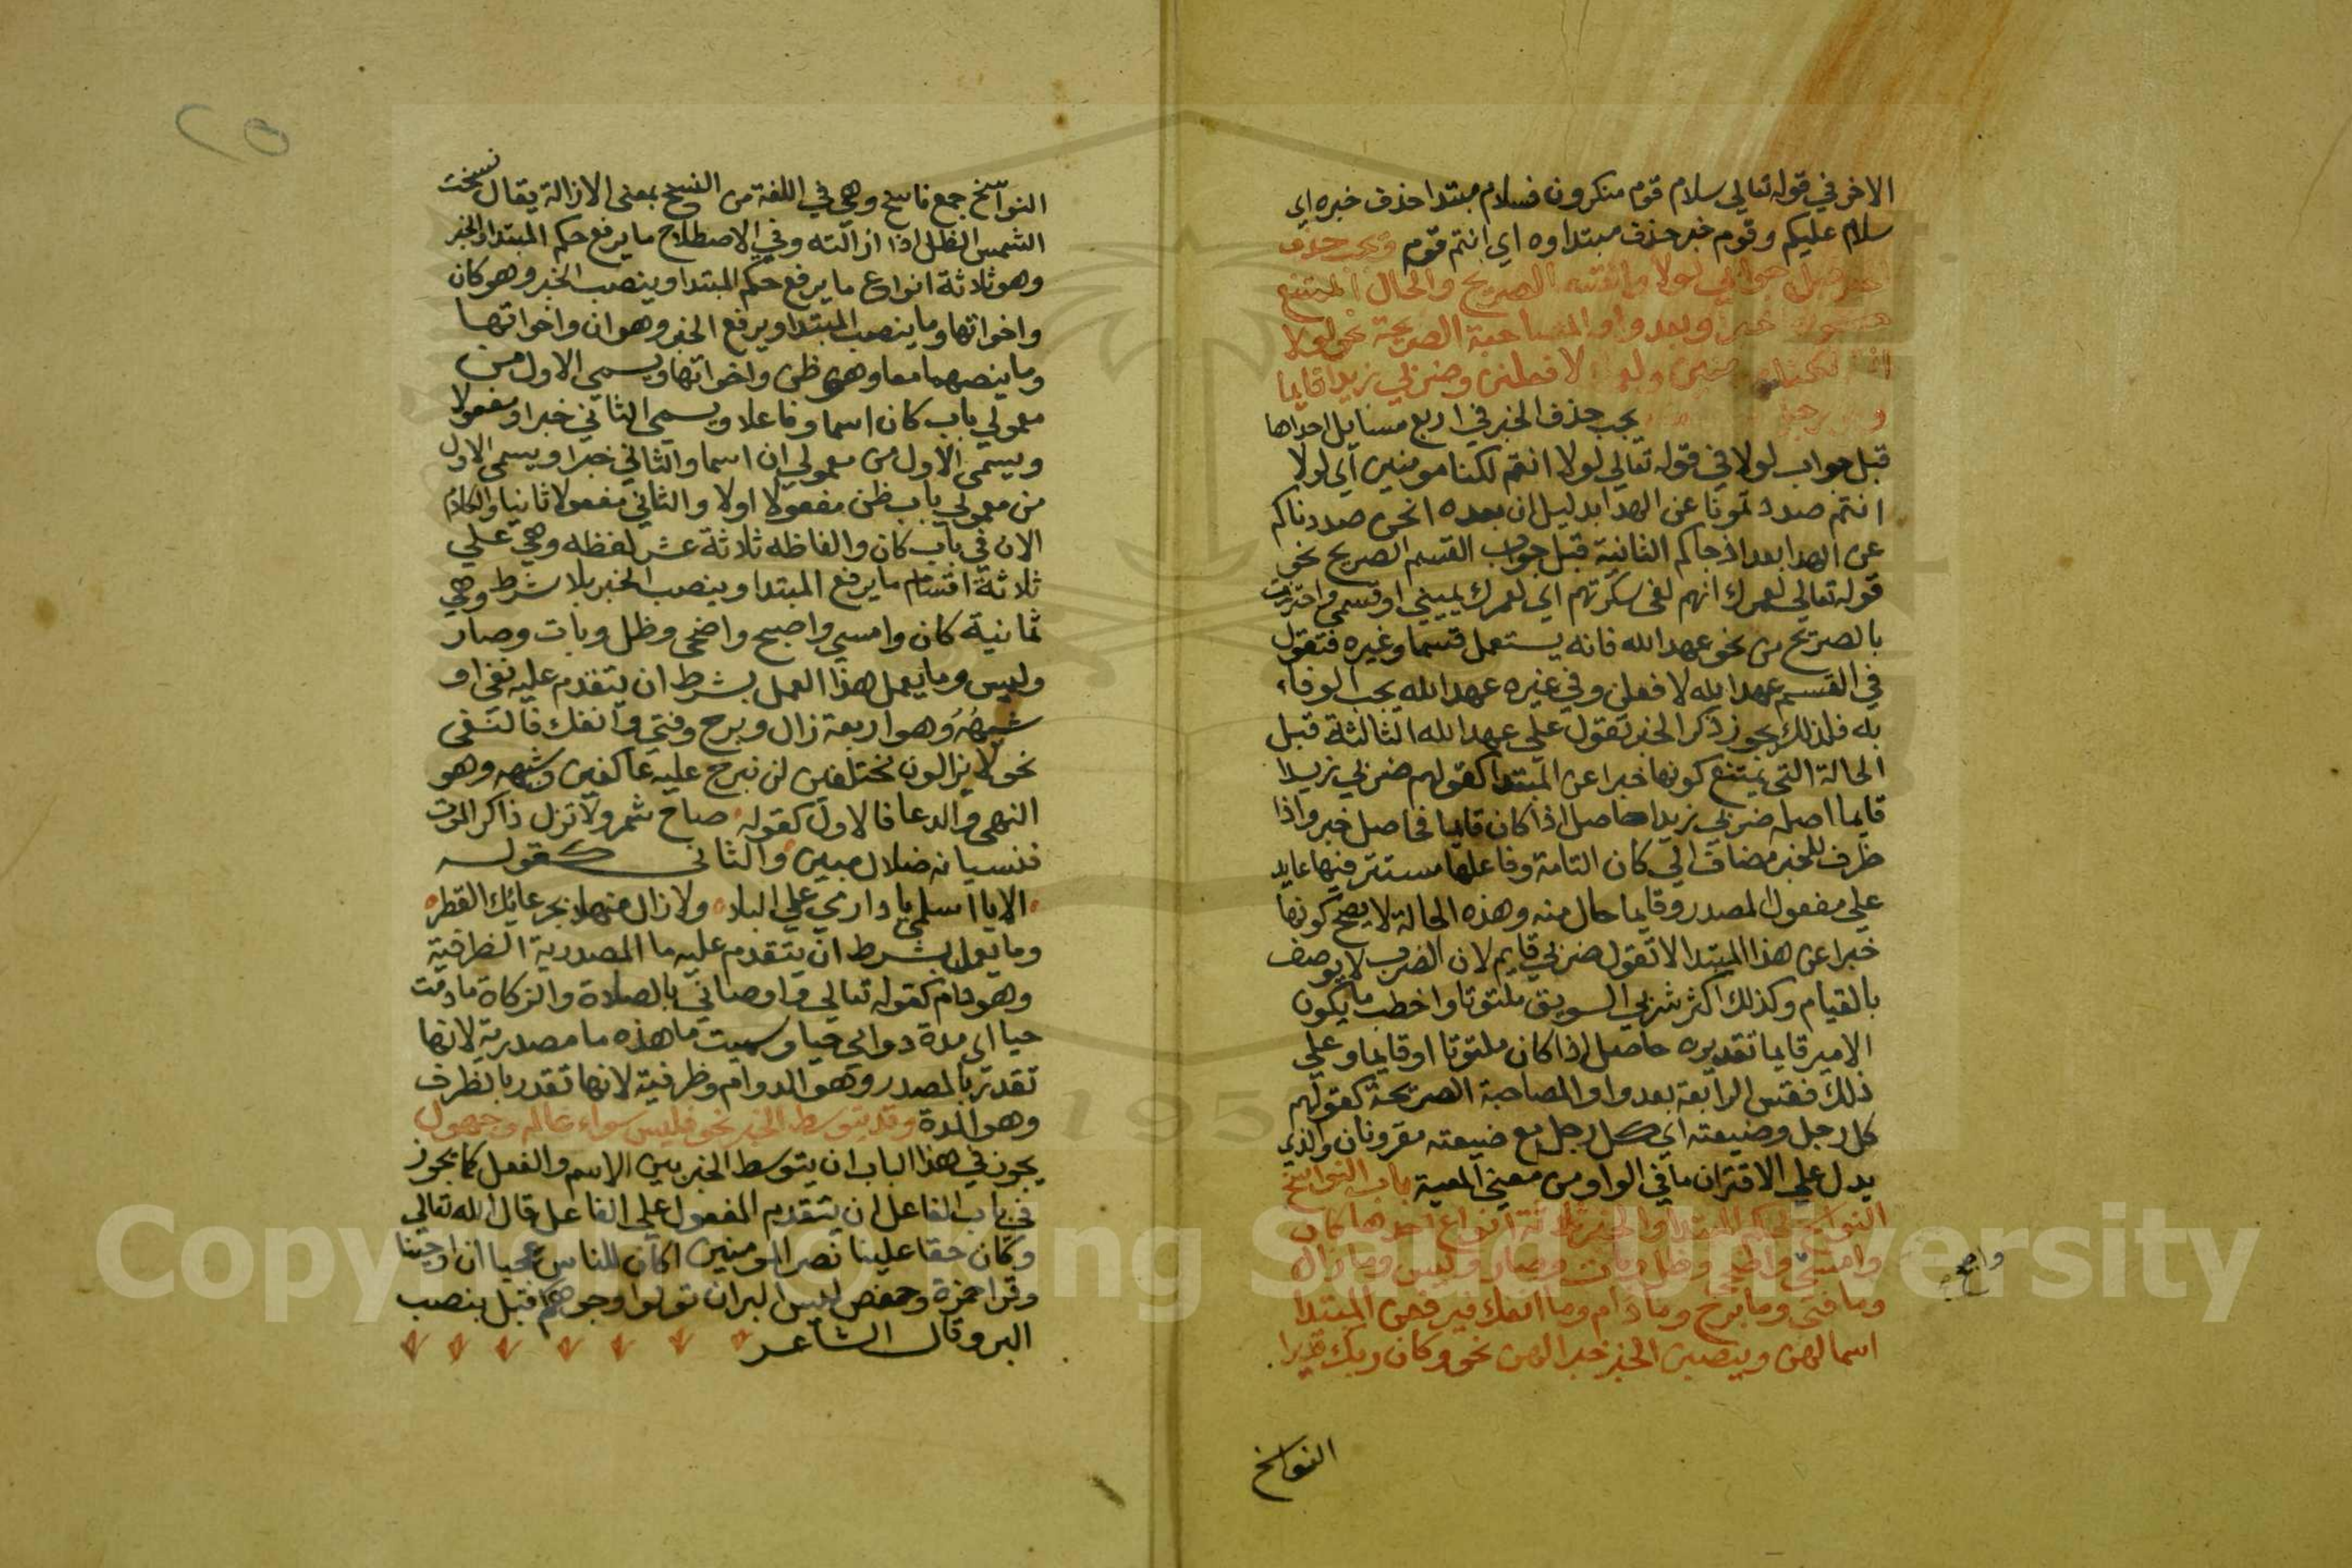 الاخر في قوله تعالي سلام قوم منكرون فسلام مبتدا حذف خبره اي
سلام عليكم وقوم خبر حذف مبتداوه اي انتم قوم ويجب حذف
قبل جوابي لولا والقسم الصريح والحال الممتنع
خبرا وبعد واو المصاحبة الصريحة نحو لولا
لافعلن وضربي زيدا قايما
يجب حذف الخبر في اربع مسايل احداها
قبل جواب لولا في قوله تعالي لولا انتم لكنا مومنين اي لولا
انتم صددتمونا عن الهدا بدليل ان بعده انحن صددناكم
عن الهدا بعد اذ جاكم الثانية قبل جواب القسم الصريح نحو
قوله تعالي لعمرك انهم لفي سكرتهم اي لعمرك يميني او قسمي واحترزت
بالصريح من نحو عهد الله فانه يستعمل قسما وغيره فتقول
في القسم عهد الله لافعلن وفي غيره عهد الله يجب الوفاء
به فلذلك يجوز ذكر الخبر تقول علي عهد الله الثالثة قبل
الحالة التي يمتنع كونها خبرا عن المبتدا كقولهم ضربي زيدا
قايما اصله ضربي زيدا حاصل اذا كان قايما فحاصل خبر واذا
ظرف للخبر مضاف الي كان التامة وفاعلها مستتر فيها عايد
علي مفعول المصدر وقايما حال منه وهذه الحالة لا يصح كونها
خبرا عن هذا المبتدا لا تقول ضربي قايم لان الضرب لا يوصف
بالقيام وكذلك اكثر شربي السويق ملتوتا واخطب ما يكون
الامير قايما تقديره حاصل اذا كان ملتوتا او قايما وعلي
ذلك فقس الرابعة بعد واو المصاحبة الصريحة كقولهم
كل رجل وضيعته اي كل رجل مع ضيعته مقرونان والذي
يدل علي الاقتران ما في الواو من معني المعية باب النواسخ
النواسخ لحكم المبتدا والخبر ثلاثة انواع احدها كان
وامسي واضحي وظل وبات وصار وليس وما زال
وما فتي وما برح وما دام وما انفك فيرفعن المبتدا
اسما لهن وينصبن الخبر خبرا لهن نحو وكان ربك قديرا
النواسخ
النواسخ جمع ناسخ وهي في اللغة من النسخ بمعني الازالة يقال نسخت
الشمس الظل اذا ازالته وفي الاصطلاح ما يرفع حكم المبتدا والخبر
وهو ثلاثة انواع ما يرفع حكم المبتدا وينصب الخبر وهو كان
واخواتها وما ينصب المبتدا ويرفع الخبر وهو ان واخواتها
وما ينصبهما معا وهو ظن واخواتها ويسمي الاول من
معمولي باب كان اسما وفاعلا ويسمي الثاني خبرا ومفعولا
ويسمي الاول من معمولي ان اسما والثاني خبرا ويسمي الاول
من معمولي باب ظن مفعولا اولا والثاني مفعولا ثانيا والكلام
الان في باب كان والفاظه ثلاثة عشر لفظه وهي علي
ثلاثة اقسام ما يرفع المبتدا وينصب الخبر بلا شرط وهي
ثمانية كان وامسي واصبح واضحي وظل وبات وصار
وليس وما يعمل هذا العمل بشرط ان يتقدم عليه نفي او
شبهه وهو اربعة زال وبرح وفتي وانفك فالنفي
نحو لا يزالون مختلفين لن نبرح عليه عاكفين وشبهه وهو
النهي والدعا فالاول كقوله صاح شمر ولا تزل ذاكر الموت
فنسيانه ضلال مبين والثاني كقوله
الا يا اسلمي يا دار مي علي البلا ولا زال منهلا بجرعائك القطر
وما يعمل بشرط ان يتقدم عليه ما المصدرية الظرفية
وهو دام كقوله تعالي واوصاني بالصلاة والزكاة ما دمت
حيا اي مدة دوامي حيا وسميت ما هذه ما مصدرية لانها
تقدر بالمصدر وهو الدوام وظرفية لانها تقدر بالظرف
وهو المدة وقد يتوسط الخبر نحو فليس سواء عالم وجهول
يجوز في هذا الباب ان يتوسط الخبر بين الاسم والفعل كما يجوز
في باب الفاعل ان يتقدم المفعول علي الفاعل قال الله تعالي
وكان حقا علينا نصر المومنين اكان للناس عجبا ان اوحينا
وقرا حمزة وحفص ليس البر ان تولوا وجوهكم قبل بنصب
البر وقال الشاعر
Copyright © King Saud University